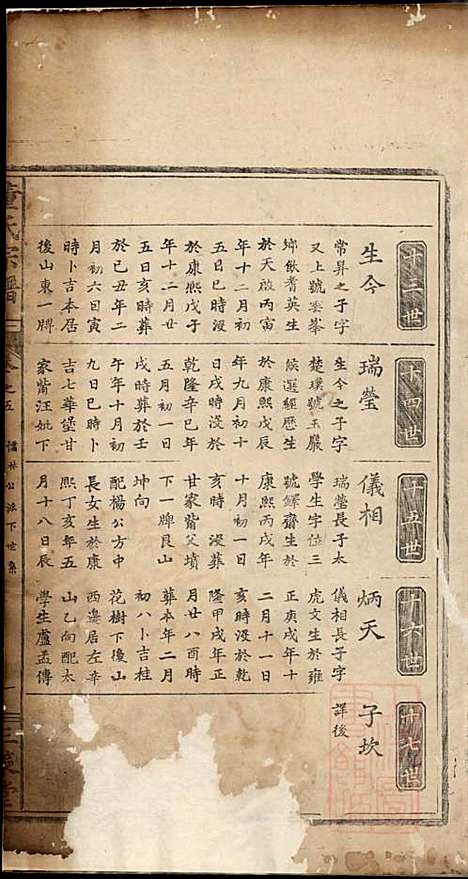 十三世
生今
常昇之子字
又上號雲峯
鄉飲耆英生
於天啟丙寅
年十二月初
五日巳時沒
於康熙戊子
年十二月廿
五日亥時葬
於己丑年二
月初六日寅
時卜吉本居
後山東一牌
十四世
瑞瑩
生今之子字
楚璞號玉嚴
候選經歷生
於康熙戊辰
年九月初十
日戌時沒於
乾隆辛巳年
五月初一日
戌時葬於壬
午年十月初
九日巳時卜
吉七華塋甘
家觜汪妣下
十五世
儀相
瑞瑩長子太
學生字位三
號鐸齋生於
康熙丙戌年
十月初一日
亥時沒葬
甘家觜父墳
下一牌艮山
坤向
配楊公方中
長女生於康
熙丁亥年五
月十八日辰
十六世
炳天
儀相長子字
虎文生於雍
正庚戌年十
二月十一日
亥時沒於乾
隆甲戌年正
月廿八酉時
葬本年二月
初八卜吉桂
花樹下後山
西邊居左辛
山乙向配太
學生盧孟傳
十七世
子坎
譯後
氏宗譜
卷之五
儒林公派下世系
一